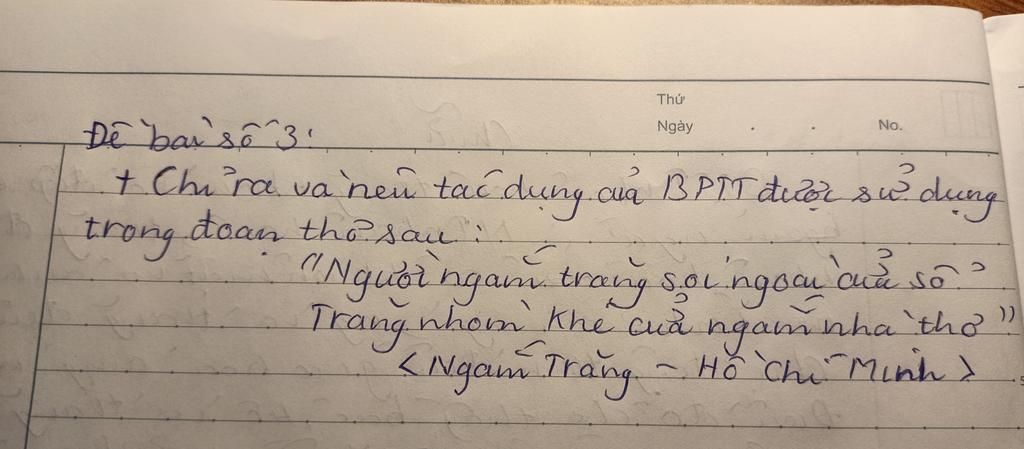 Thứ
Ngày . . No.
Đề bài số 3:
+ Chỉ ra và nêu tác dụng của BPTT được sử dụng
trong đoạn thơ sau:
"Người ngắm trăng soi ngoài cửa sổ
Trăng nhòm khe cửa ngắm nhà thơ"
<Ngắm Trăng - Hồ Chí Minh>